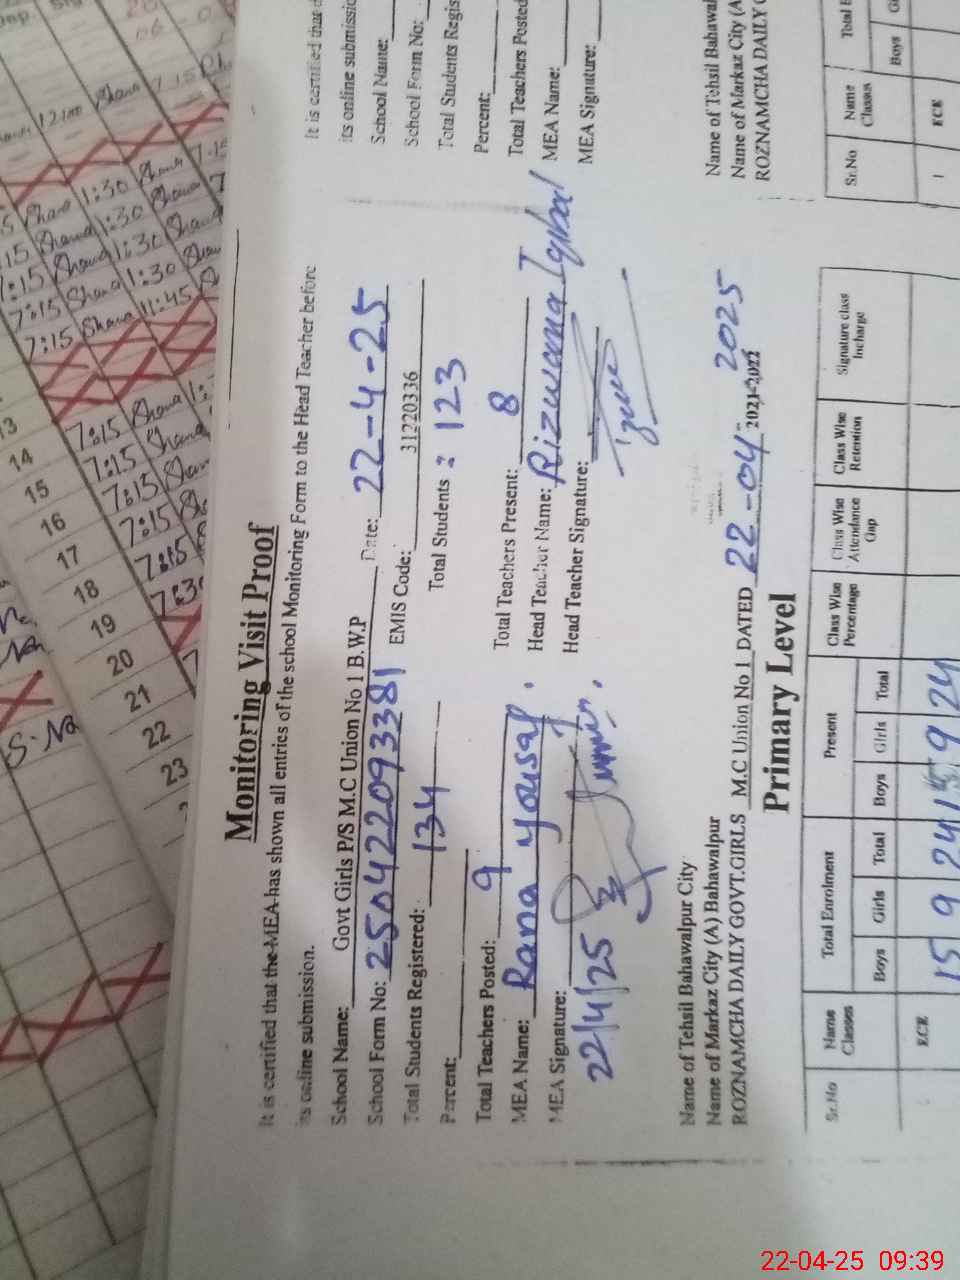 Monitoring Visit Proof
It is certified that the MEA has shown all entries of the school Monitoring Form to the Head Teacher before
its online submission.
School Name: Govt Girls P/S M.C Union No 1 B.W.P Date: 22-4-25
School Form No: 250422093381 EMIS Code: 31220336
Total Students Registered: 134 Total Students : 123
Percent:
Total Teachers Posted: 9 Total Teachers Present: 8
MEA Name: Rana Yousaf. Head Teacher Name: Rizwana Iqbal
MEA Signature: Head Teacher Signature:
22/4/25
Name of Tehsil Bahawalpur City
Name of Markaz City (A) Bahawalpur
ROZNAMCHA DAILY GOVT.GIRLS M.C Union No 1 DATED 22-04 2021-2022 2025
Primary Level
Sr.No Name Classes Total Enrolment Present Class Wise Percentage Class Wise Attendance Gap Class Wise Retention Signature class Incharge
Boys Girls Total Boys Girls Total
ECE 15 9 24 15 9 24
It is certified that
its online submission
School Name:
School Form No:
Total Students Regis
Percent:
Total Teachers Posted
MEA Name:
MEA Signature:
Name of Tehsil Bahawal
Name of Markaz City (A
ROZNAMCHA DAILY G
Sr.No Name Classes Total E
Boys
1 ECE
7:15 Shama 1:30 Shama
7:15 Shama 1:30 Shama
7:15 Shama 1:30
7:15 Shama 11:45
13
14 7:15 Shama
15 7:15 Shama
16 7:15 Sham
17 7:15
18 7:15
19 7:30
20
21
22
23
22-04-25 09:39